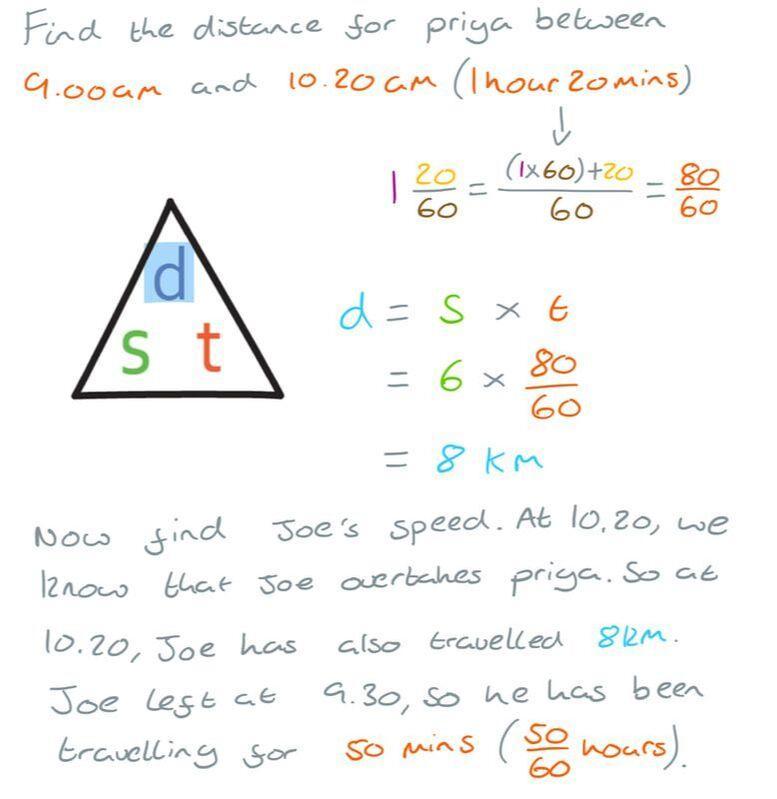 Find the distance for priya between
9.00am and 10.20am (1hour 20mins)
1 20/60 = (1x60)+20/60 = 80/60
d
s t
d = s × t
= 6 × 80/60
= 8 km
Now find Joe's speed. At 10.20, we
know that Joe overtakes priya. So at
10.20, Joe has also travelled 8km.
Joe left at 9.30, so he has been
travelling for 50 mins (50/60 hours).